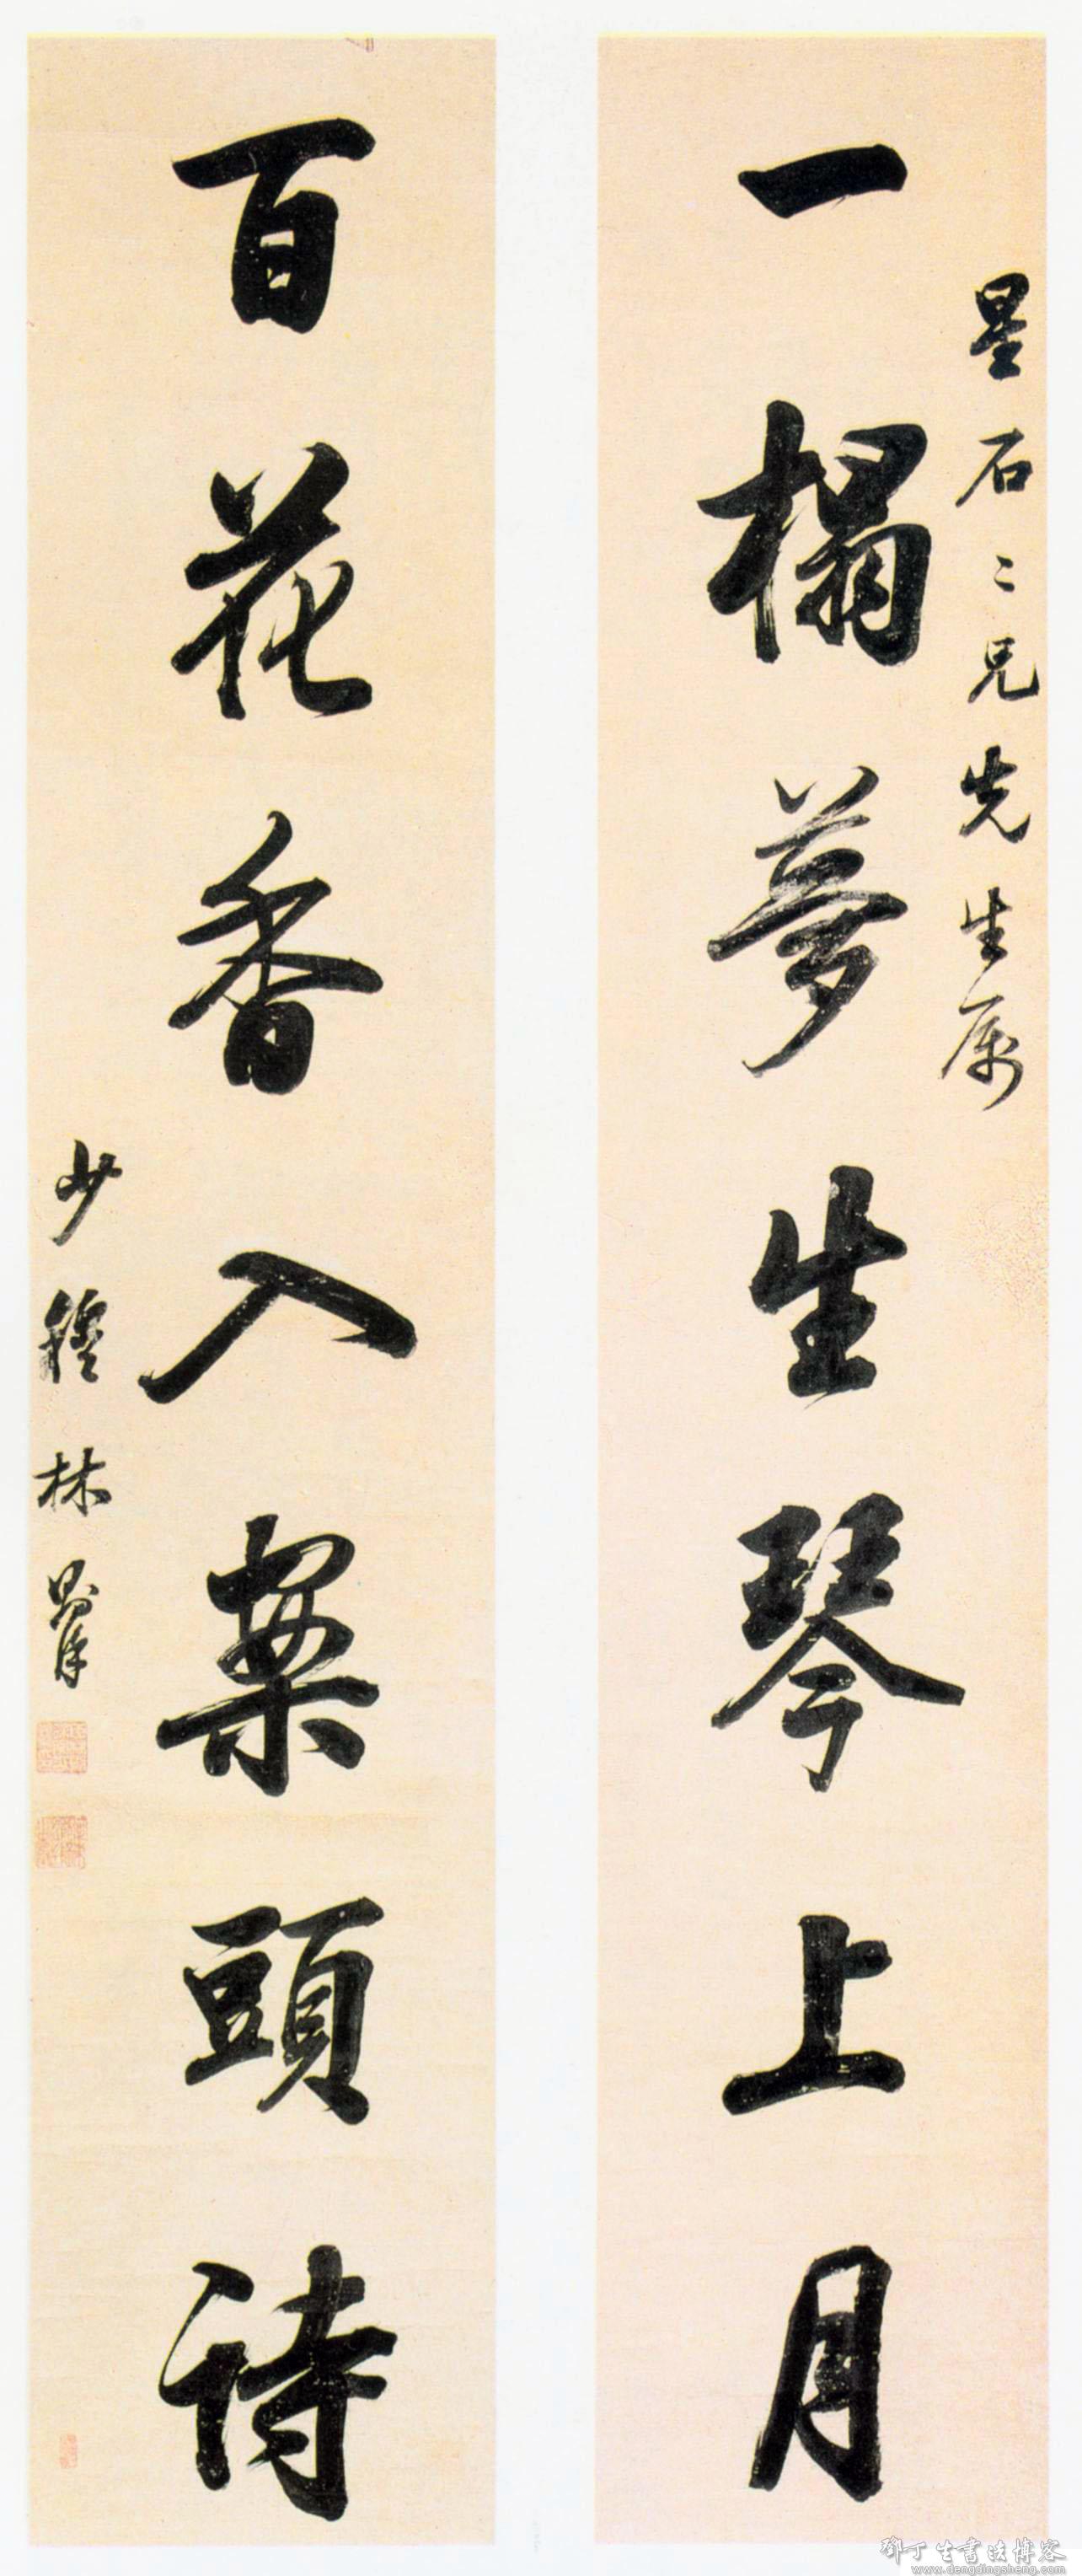 星石二兄先生属
一榻梦生琴上月
百花香入案頭詩
少穆林則徐
鄧丁生書法博客
www.dengdingsheng.com